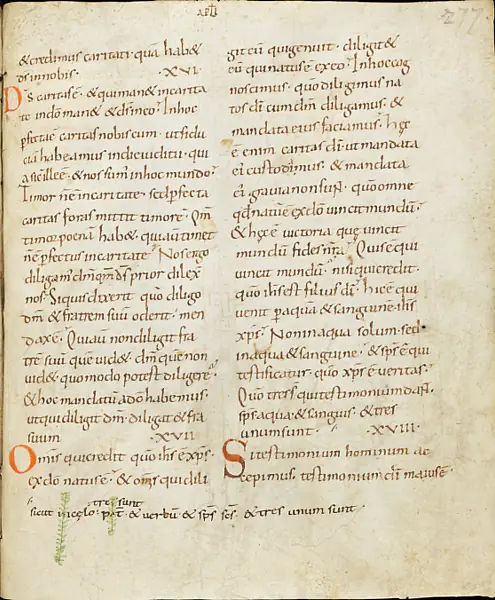 277
& credimus caritati quā hab&
ds innobis · XVI ·
Ds caritas ē · & qui man& incarita
te indō man& & ds ineo · Inhoc
perfecta ē caritas nobiscum · ut fidu
ciā habeamus indie iudicii · qui
a sicut ille ē · & nos sum inhoc mundo ·
Timor n̄ ē incaritate · sed perfecta
caritas foras mittit timorē · Qm̄
timor poenā hab& · qui aut tim&
n̄ ē perfectus incaritate · Nos ergo
diligam dm̄ qm̄ ds prior dilex
nos · Siquis dixerit quo diligo
dm̄ & fratrem suū oderit · men
dax ē · Qui aū non diligit fra
trē suū quē uid& · dm̄ quē non
uid& quomodo potest diligere ·
& hoc mandatū ad̄o habemus ·
ut qui diligit dm̄ · diligat & fra
suum · XVII ·
Omīs qui credit quo ihs ē xp̄s ·
exdō natus ē · & om̄s qui dili
git eū qui genuit · diligit &
eū qui natus ē ex eo · Inhoc cog
noscimus · quo diligimus na
tos dī cum dm̄ diligamus · &
mandata eius faciamus · hęc
ē enim caritas dī · ut mandata
ei custodimus · & mandata
ei grauia non sunt · quo omne
qd natū ē exdō uincit mundū ·
& hęc ē uictoria que uincit
mundū fides nr̄a · Quis ē qui
uincit mundū · nisi qui credit ·
quo ihs est filius dī · hic ē qui
uenit p aquā & sanguinē · ihs
xp̄s · Non in aqua solum · sed
in aqua & sanguine · & sp̄s ē qui
testificatur · quo xp̄s ē ueritas ·
Quo tres s qui testimonium dant ·
sp̄s aqua & sanguis · & tres
unum sunt · XVIII ·
Si testimonium hominum ac
cepimus · testimonium dī maius ē ·
tres sunt
sicut in cęlo · pat & uerbū & sp̄s · sc̄s · & tres unum sunt ·